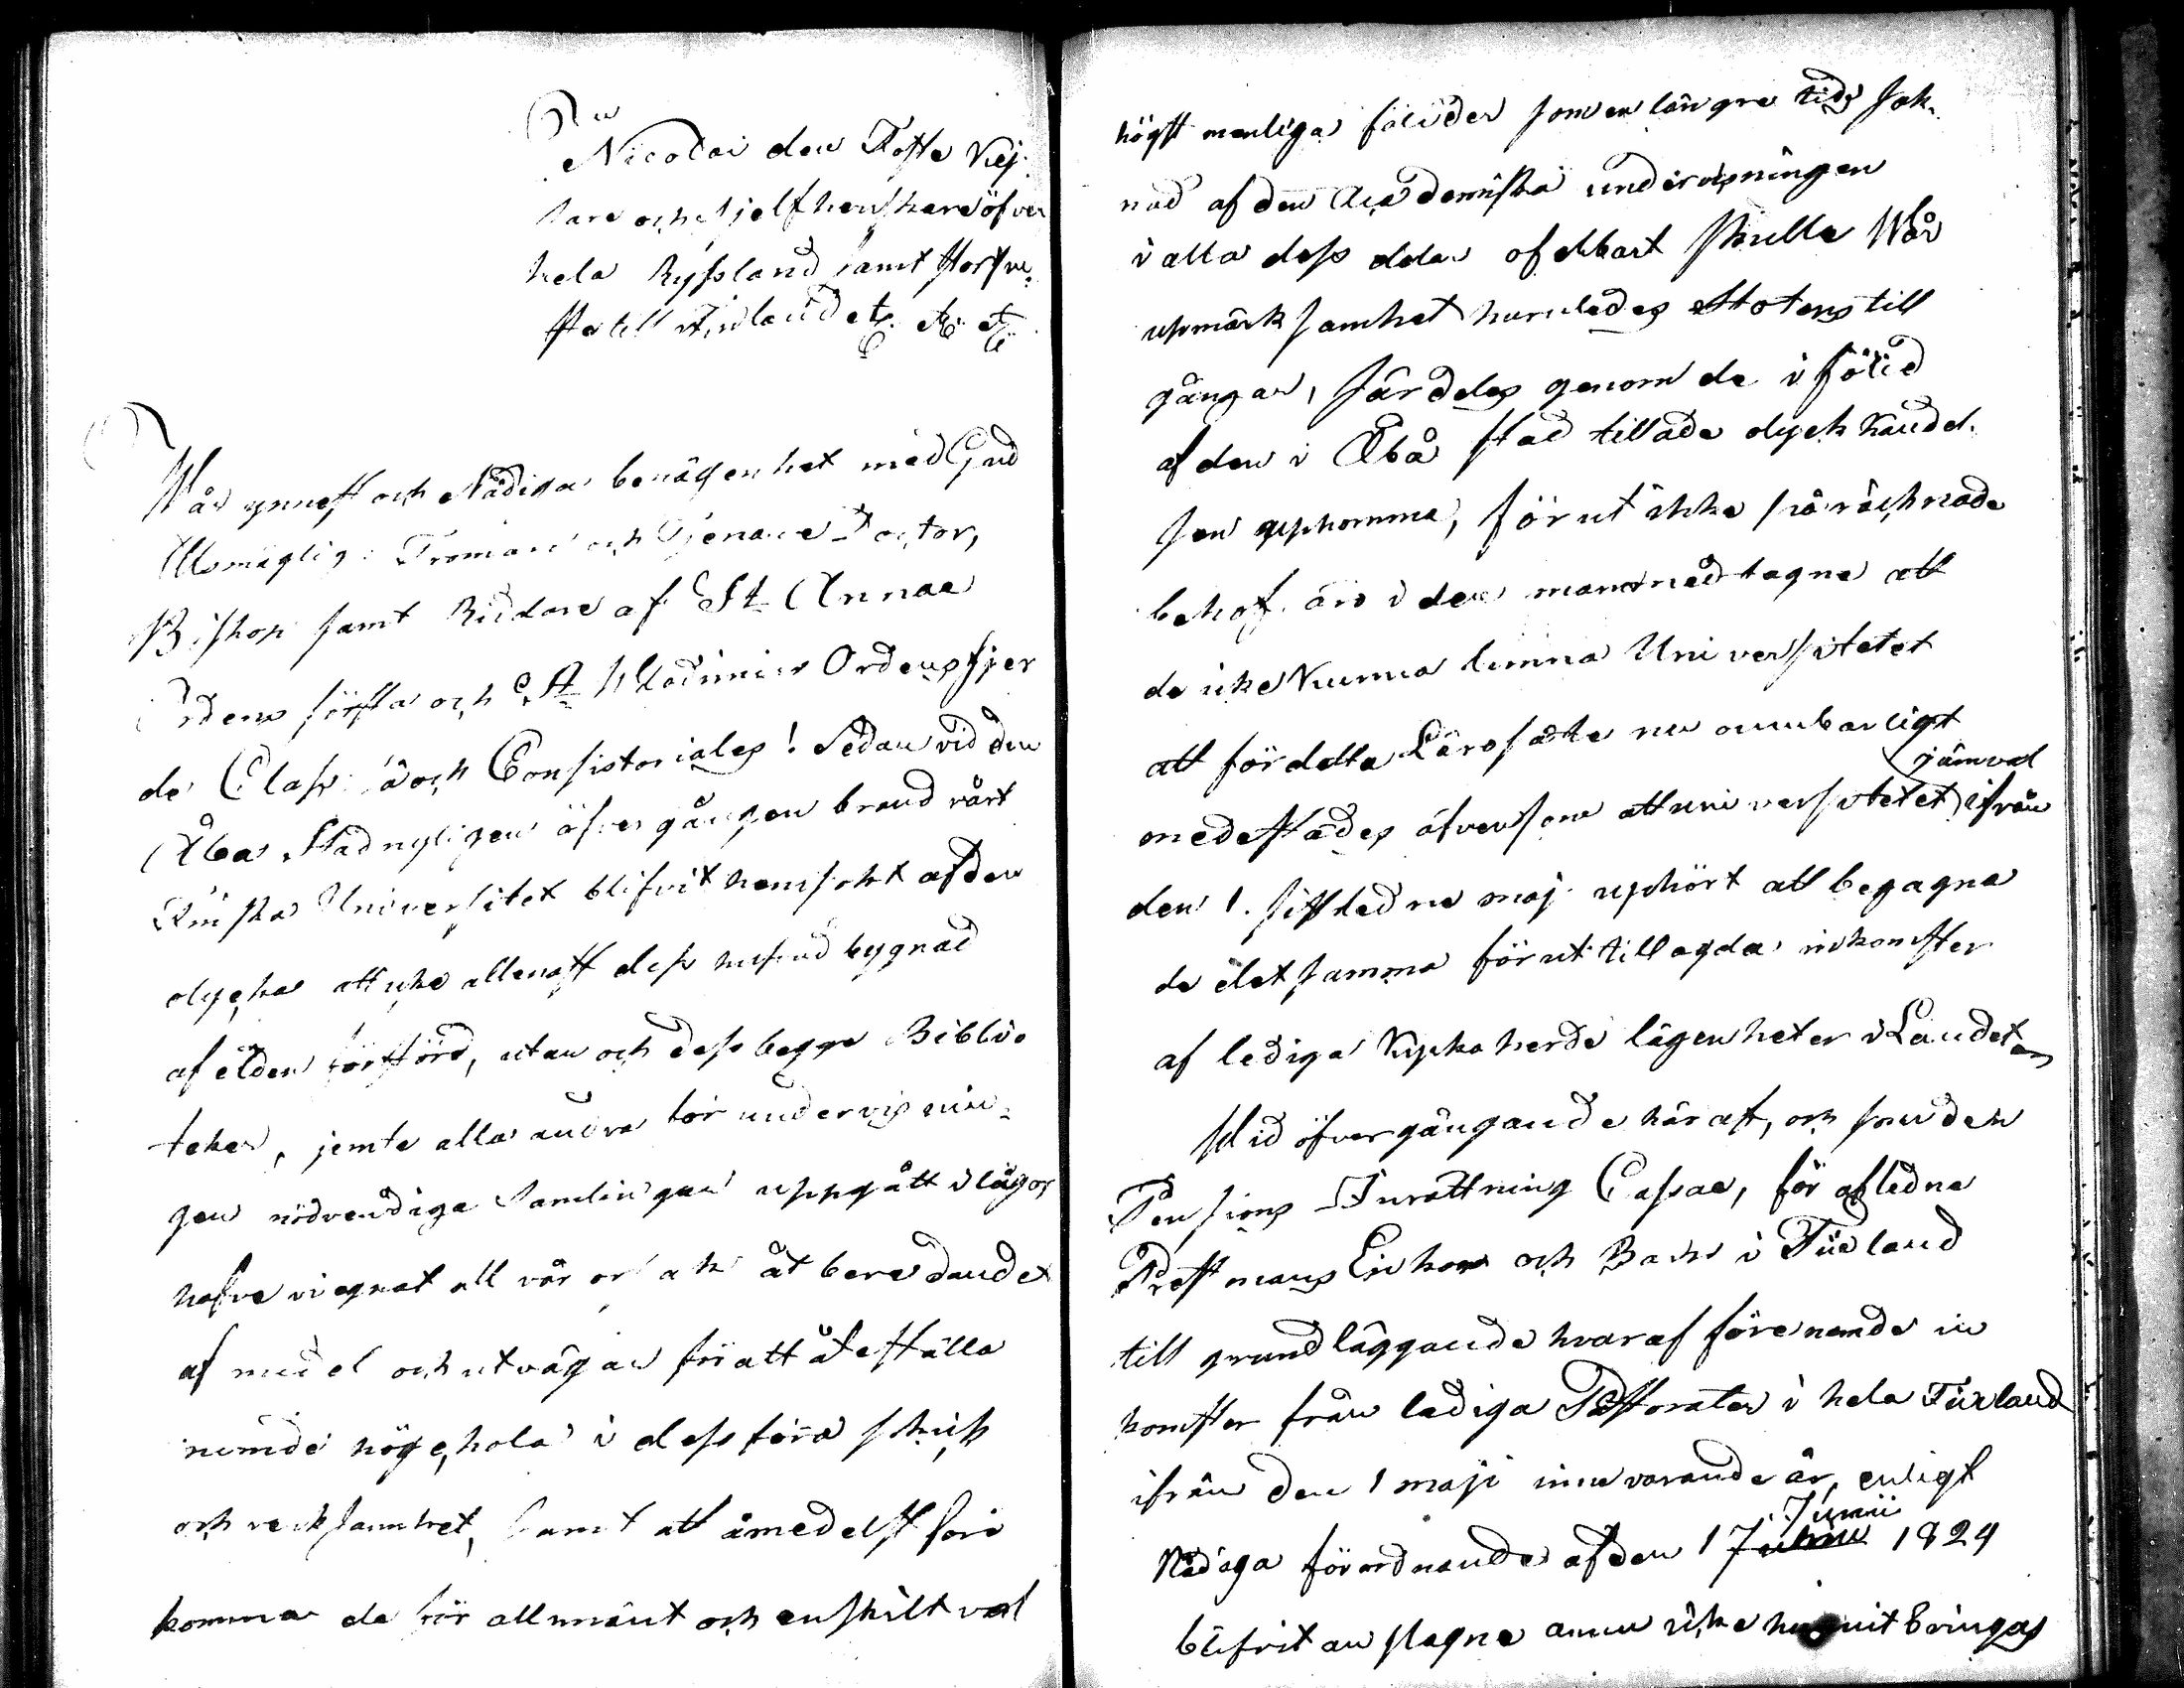 Nicolai den Första Kej-
sare och sjelfherskare öfver
hela Ryssland samt storfur-
ste till Finland etc. etc. etc.
Vår ynnest och Nådiga benägenhet med Gud
Allsmägtig. Troman och Tjenare Doctor,
Biskop samt Riddare af St. Annae
Ordens första och St. Wladimirs Ordens fjer
de Class så och Consistoriales! Sedan vid den
Åbo Stad nyligen öfvergången brand vårt
Finska Universitet blifvit hemsökt af den
olycka att icke allenast dess hufvud bygnad
af elden förstörd, utan och dess begge Biblio
teker, jemte alla andra för undervisnin-
gen nödvendiga Samlingar uppgått i lågor
hafve vi egnat all vår åt beredandet
af medel och utvägar för att återställa
nemde högschola i dess förra skick
och verksamhet, samt att åmedelst före
komma de för allmänt och enskilt väl
högst menliga följder som en längre tids sak-
nad af den Academiska undervisningen
i alla dess delar ofelbart skulle Vår
upmärksamhet hurusledes Statens till
gångar, särdeles genom de i följd
af den i Åbo stad timade olyck händel-
sen upkomne, förut ikke påräcknade
behof äro i den mon medtagne att
de icke kunna lemna Universitetet
att för detta Lärosäte nu oumbarligt
jämväl
medelstådes äfvensom att universitetet ifrån
den 1. sistledne maj uphört att begagna
de det samma förut tillagda inkomster
af lediga Kyrkoherde lägenheter i Landet
Vid öfvergångande häraf, och som den
Pensions Inrättning Cassae, för afledne
Prestmans Enkor och Barn i Finland
till grundläggande hvaraf förenemde in
komster från lediga Pastorater i hela Finland
ifrån den 1 maji innevarande år, enligt
Junii
Nådiga förordnande af den 1 1824
blifvit anslagne ännu icke hunnit bringas